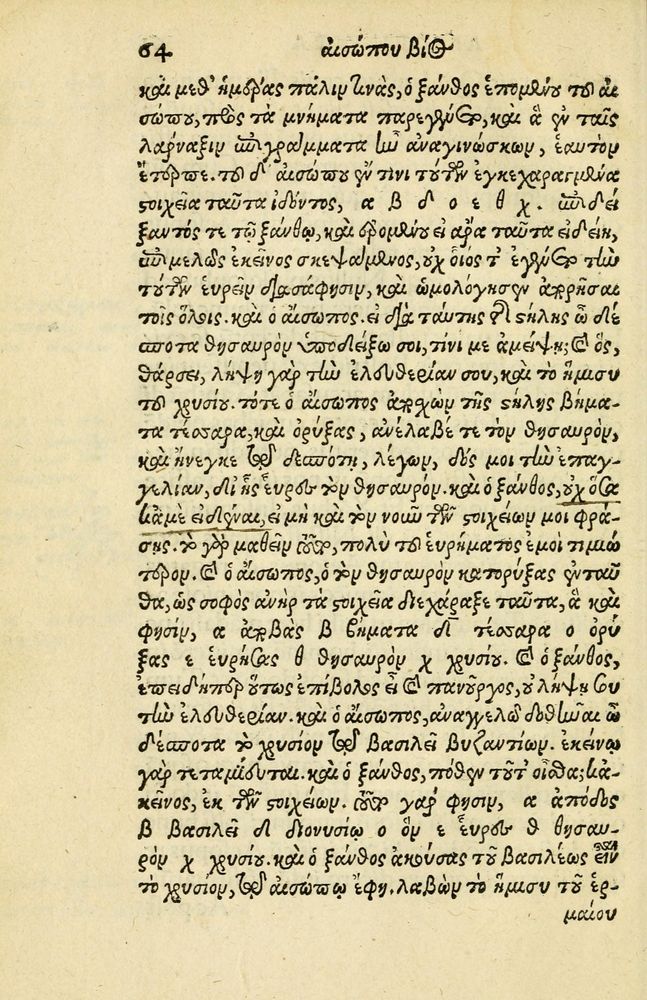 64 αἰσώπου βίος
καὶ μεθ' ἡμέρας πάλιν τινὰς, ὁ ξάνθος ἑπομένου τοῦ αἰ
σώπου, πρὸς τὰ μνήματα παρεγένετο, καὶ ἃ ἐν ταῖς
λάρναξιν ἐπιγράμματα ἦν ἀναγινώσκων, ἑαυτὸν
ἔτερπε. τοῦ δ' αἰσώπου ἔν τινι τούτων ἐγκεχαραγμένα
στοιχεῖα ταῦτα ἰδόντος, α β δ ο ε θ χ. ἐπιδεί
ξαντός τε τῷ ξάνθῳ, καὶ ἐρομένου εἰ ἄρα ταῦτα εἰδείη,
ἐπιμελῶς ἐκεῖνος σκεψάμενος, οὐχ οἷός τ' ἐγένετο τὴν
τούτων εὑρεῖν διασάφησιν, καὶ ὡμολόγησεν ἀπορῆσαι
τοῖς ὅλοις. καὶ ὁ αἴσωπος. εἰ διὰ ταύτης τῆς στήλης ὦ δέ
σποτα θησαυρὸν ὑποδείξω σοι, τίνι με ἀμείψῃ; καὶ ὃς,
θάρσει, λήψῃ γὰρ τὴν ἐλευθερίαν σου, καὶ τὸ ἥμισυ
τοῦ χρυσίου. τότε ὁ αἴσωπος ἀποσχὼν τῆς στήλης βήμα-
τα τέσσαρα, καὶ ὀρύξας, ἀνέλαβέ τε τὸν θησαυρὸν,
καὶ ἤνεγκε τῷ δεσπότῃ, λέγων, δός μοι τὴν ἐπαγ-
γελίαν, δι' ἧς εὗρες τὸν θησαυρόν. καὶ ὁ ξάνθος, οὐχ
κἀμὲ εἰδέναι, εἰ μὴ καὶ τὸν νοῦν τῶν στοιχείων μοι φρά-
σῃς. τὸ γὰρ μαθεῖν τοῦτο, πολὺ τοῦ εὑρήματος ἐμοὶ τιμιώ
τερον. καὶ ὁ αἴσωπος, ὁ τὸν θησαυρὸν κατορύξας ἐνταῦ
θα, ὡς σοφὸς ἀνὴρ τὰ στοιχεῖα διεχάραξε ταῦτα, ἃ καὶ
φησίν, α ἀποβὰς β βήματα δ τέσσαρα ο ὀρύ
ξας ε εὑρήσεις θ θησαυρὸν χ χρυσίου. καὶ ὁ ξάνθος,
ἐπειδήπερ οὕτως ἐπίβολος εἶ καὶ πανοῦργος, οὐ λήψῃ σου
τὴν ἐλευθερίαν. καὶ ὁ αἴσωπος, ἀναγγελῶ δοθῆναι ὦ
δέσποτα τὸ χρυσίον τῷ βασιλεῖ βυζαντίων. ἐκείνῳ
γὰρ τεταμίευται. καὶ ὁ ξάνθος, πόθεν τοῦτ' οἶσθα; κἀ-
κεῖνος, ἐκ τῶν στοιχείων. τοῦτο γάρ φησιν, α ἀπόδος
β βασιλεῖ δ διονυσίῳ ο ὃν ε εὗρες θ θησαυ-
ρὸν χ χρυσίου. καὶ ὁ ξάνθος ἀκούσας τοῦ βασιλέως εἶναι
τὸ χρυσίον, τῷ αἰσώπῳ ἔφη. λαβὼν τὸ ἥμισυ τοῦ ἑρ-
μαίου